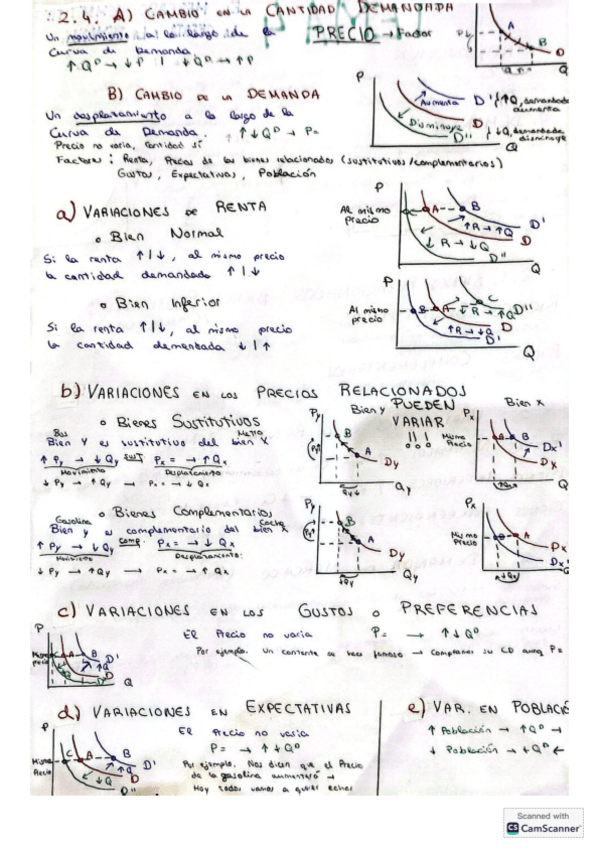 2.4. A) CAMBIO EN LA CANTIDAD DEMANDADA
Un movimiento a lo largo de la PRECIO → Factor
Curva de Demanda.
↑Qᴰ → ↓P | ↓Qᴰ → ↑P
P↓ A B D Q
B) CAMBIO DE LA DEMANDA
Un desplazamiento a lo largo de la
Curva de Demanda. ↑↓Qᴰ → P=
Precio no varia, Cantidad sí
Factores: Renta, Precios de los bienes relacionados (sustitutivos/complementarios)
Gustos, Expectativas, Población
P Aumenta D' ↑Q, demandada aumenta
D
Disminuye D'' ↓Q, demandada disminuye
Q
a) VARIACIONES DE RENTA
o Bien Normal
Si la renta ↑/↓, al mismo precio
la cantidad demandada ↑/↓
P Al mismo precio A B D'
↑R → ↑Q D
↓R → ↓Q D''
Q
o Bien Inferior
Si la renta ↑/↓, al mismo precio
la cantidad demandada ↓/↑
P Al mismo precio B A C
↓R → ↑Q D''
↑R → ↓Q D
D'
Q
b) VARIACIONES EN LOS PRECIOS RELACIONADOS
o Bienes Sustitutivos
Bus Metro
Bien Y es sustitutivo del bien X
↑Py → ↓Qy SUST Px = → ↑Qx
Movimiento Desplazamiento
↓Py → ↑Qy → P = → ↓Qx
Bien y PUEDEN VARIAR !!! Bien X
Py B A Dy Qy
Px Mismo Precio A B Dx' Dx ↑Qx
o Bienes Complementarios
Gasolina Coche
Bien y es complementario del bien X
↑Py → ↓Qy comp. Px = → ↓Qx
Movimiento Desplazamiento:
↓Py → ↑Qy → Px = → ↑Qx
Py B A Dy ↓Qy Qy
Px Mismo Precio B A Dx Dx' ↓Qx
c) VARIACIONES EN LOS GUSTOS o PREFERENCIAS
El Precio no varia P= → ↑↓Qᴰ
Por ejemplo. Un cantante se hace famoso → compramos su CD aunq P=
P Mismo precio A B D' ↑Q D Q
d) VARIACIONES EN EXPECTATIVAS
El Precio no varia
P= → ↑↓Qᴰ
Por ejemplo, Nos dicen que el Precio
de la gasolina aumentará →
Hoy todos vamos a querer echar
P Mismo Precio C A B D' ↑Q D D'' Q
e) VAR. EN POBLACIÓ
↑ Población → ↑Qᴰ →
↓ Población → ↓Qᴰ ←
Scanned with
CS CamScanner